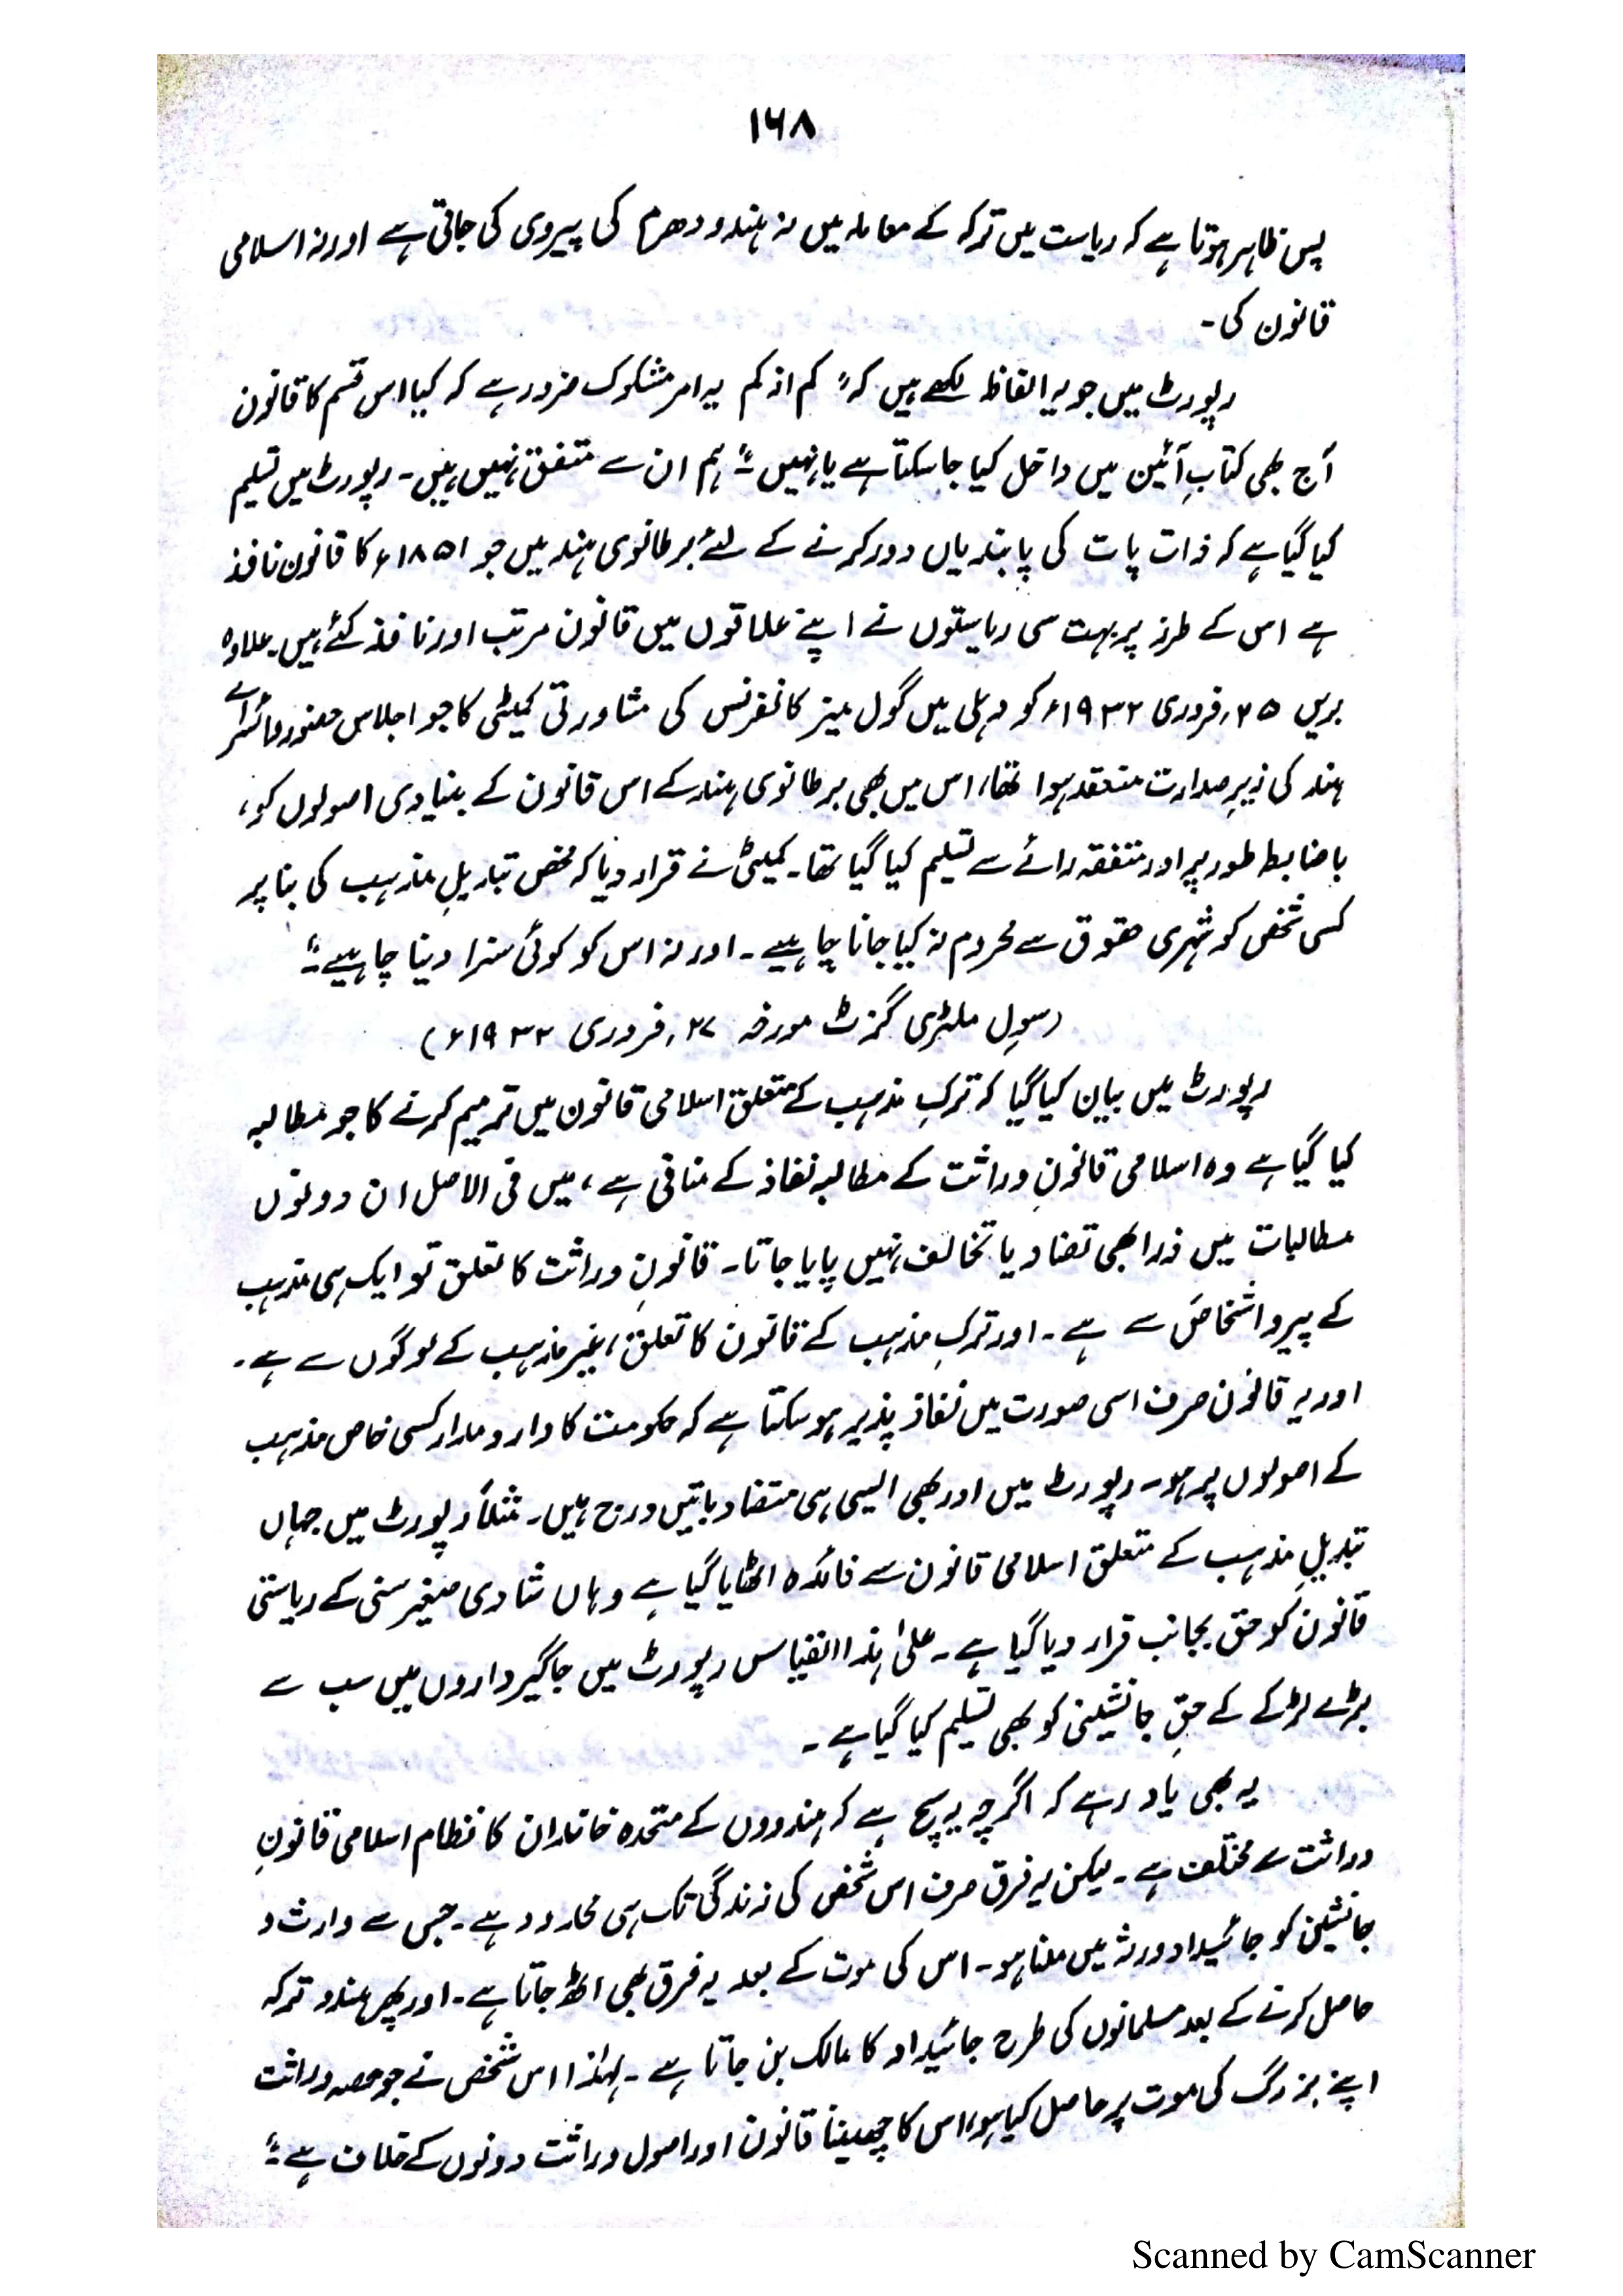 ۱۶۸
پس ظاہر ہوتا ہے کہ ریاست میں ترکہ کے معاملہ میں نہ ہندو دھرم کی پیروی کی جاتی ہے اور نہ اسلامی
قانون کی۔
رپورٹ میں جو یہ الفاظ لکھے ہیں کہ "کم از کم یہ امر مشکوک ضرور ہے کہ کیا اس قسم کا قانون
آج بھی کتابِ آئین میں داخل کیا جا سکتا ہے یا نہیں"۔ ہم ان سے متفق نہیں ہیں۔ رپورٹ میں تسلیم
کیا گیا ہے کہ ذات پات کی پابندیاں دور کرنے کے لئے برطانوی ہند میں جو ۱۸۵۱ء کا قانون نافذ
ہے اس کے طرز پر بہت سی ریاستوں نے اپنے علاقوں میں قانون مرتب اور نافذ کئے ہیں۔ علاوہ
بریں ۲۵؍فروری ۱۹۳۲ء کو دہلی میں گول میز کانفرنس کی مشاورتی کمیٹی کا جو اجلاس حضور وائسرائے
ہند کی زیرِ صدارت منعقد ہوا تھا، اس میں بھی برطانوی ہند کے اس قانون کے بنیادی اصولوں کو،
باضابطہ طور پر اور متفقہ رائے سے تسلیم کیا گیا تھا۔ کمیٹی نے قرار دیا کہ محض تبدیلِ مذہب کی بنا پر
کسی شخص کو شہری حقوق سے محروم نہ کیا جانا چاہیے۔ اور نہ اس کو کوئی سزا دینا چاہیے"۔
(سول ملٹری گزٹ مورخہ ۲۷؍فروری ۱۹۳۲ء)
رپورٹ میں بیان کیا گیا کہ ترکِ مذہب کے متعلق اسلامی قانون میں ترمیم کرنے کا جو مطالبہ
کیا گیا ہے وہ اسلامی قانونِ وراثت کے مطالبہ نفاذ کے منافی ہے، میں فی الاصل ان دونوں
مطالبات میں ذرا بھی تضاد یا تخالف نہیں پایا جاتا۔ قانونِ وراثت کا تعلق تو ایک ہی مذہب
کے پیرو اشخاص سے ہے۔ اور ترکِ مذہب کے قانون کا تعلق، غیر مذہب کے لوگوں سے ہے۔
اور یہ قانون صرف اسی صورت میں نفاذ پذیر ہو سکتا ہے کہ حکومت کا دارومدار کسی خاص مذہب
کے اصولوں پر ہو۔ رپورٹ میں اور بھی ایسی ہی متضاد باتیں درج ہیں۔ مثلاً رپورٹ میں جہاں
تبدیلِ مذہب کے متعلق اسلامی قانون سے فائدہ اٹھایا گیا ہے وہاں شادی صغیر سنی کے ریاستی
قانون کو حق بجانب قرار دیا گیا ہے۔ علیٰ ہذا القیاس رپورٹ میں جاگیرداروں میں سب سے
بڑے لڑکے کے حقِ جانشینی کو بھی تسلیم کیا گیا ہے۔
یہ بھی یاد رہے کہ اگرچہ یہ سچ ہے کہ ہندوؤں کے متحدہ خاندان کا نظام اسلامی قانونِ
وراثت سے مختلف ہے۔ لیکن یہ فرق صرف اس شخص کی زندگی تک ہی محدود ہے۔ جس سے وارث و
جانشین کو جائیداد ورثہ میں ملنا ہو۔ اس کی موت کے بعد یہ فرق بھی اٹھ جاتا ہے۔ اور پھر ہندو ترکہ
حاصل کرنے کے بعد مسلمانوں کی طرح جائیداد کا مالک بن جاتا ہے۔ لہٰذا اس شخص نے جو حصہ وراثت
اپنے بزرگ کی موت پر حاصل کیا ہو، اس کا چھیننا قانون اور اصول وراثت دونوں کے خلاف ہے"۔
Scanned by CamScanner